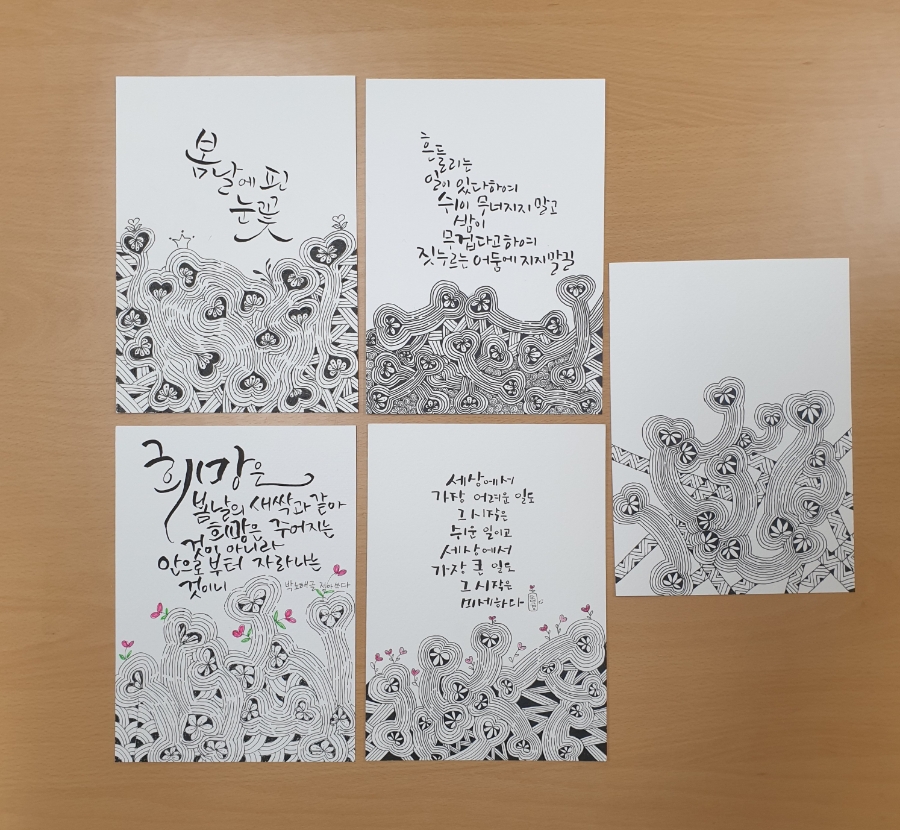 봄날에 핀
눈꽃
흔들리는
일이 있다하여
쉬이 무너지지 말고
밤이
무겁다고하여
짓누르는 어둠에 지지말길
희망은
봄날의 새싹과 같아
희망은 주어지는
것이 아니라
안으로부터 자라나는
것이니
박노해글
세상에서
가장 어려운 일도
그 시작은
쉬운 일이고
세상에서
가장 큰 일도
그 시작은
미세하다